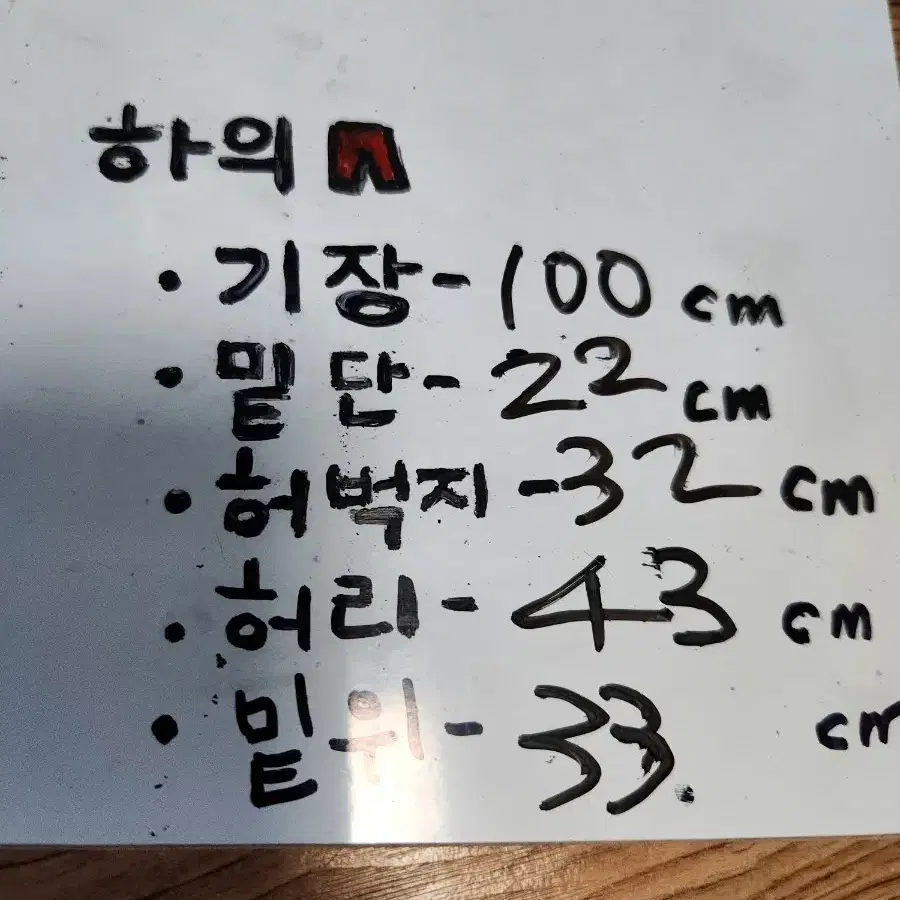 하의
· 기장 - 100 cm
· 밑단 - 22 cm
· 허벅지 - 32 cm
· 허리 - 43 cm
· 밑위 - 33 cm